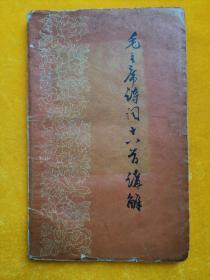 毛主席诗词十八首讲解